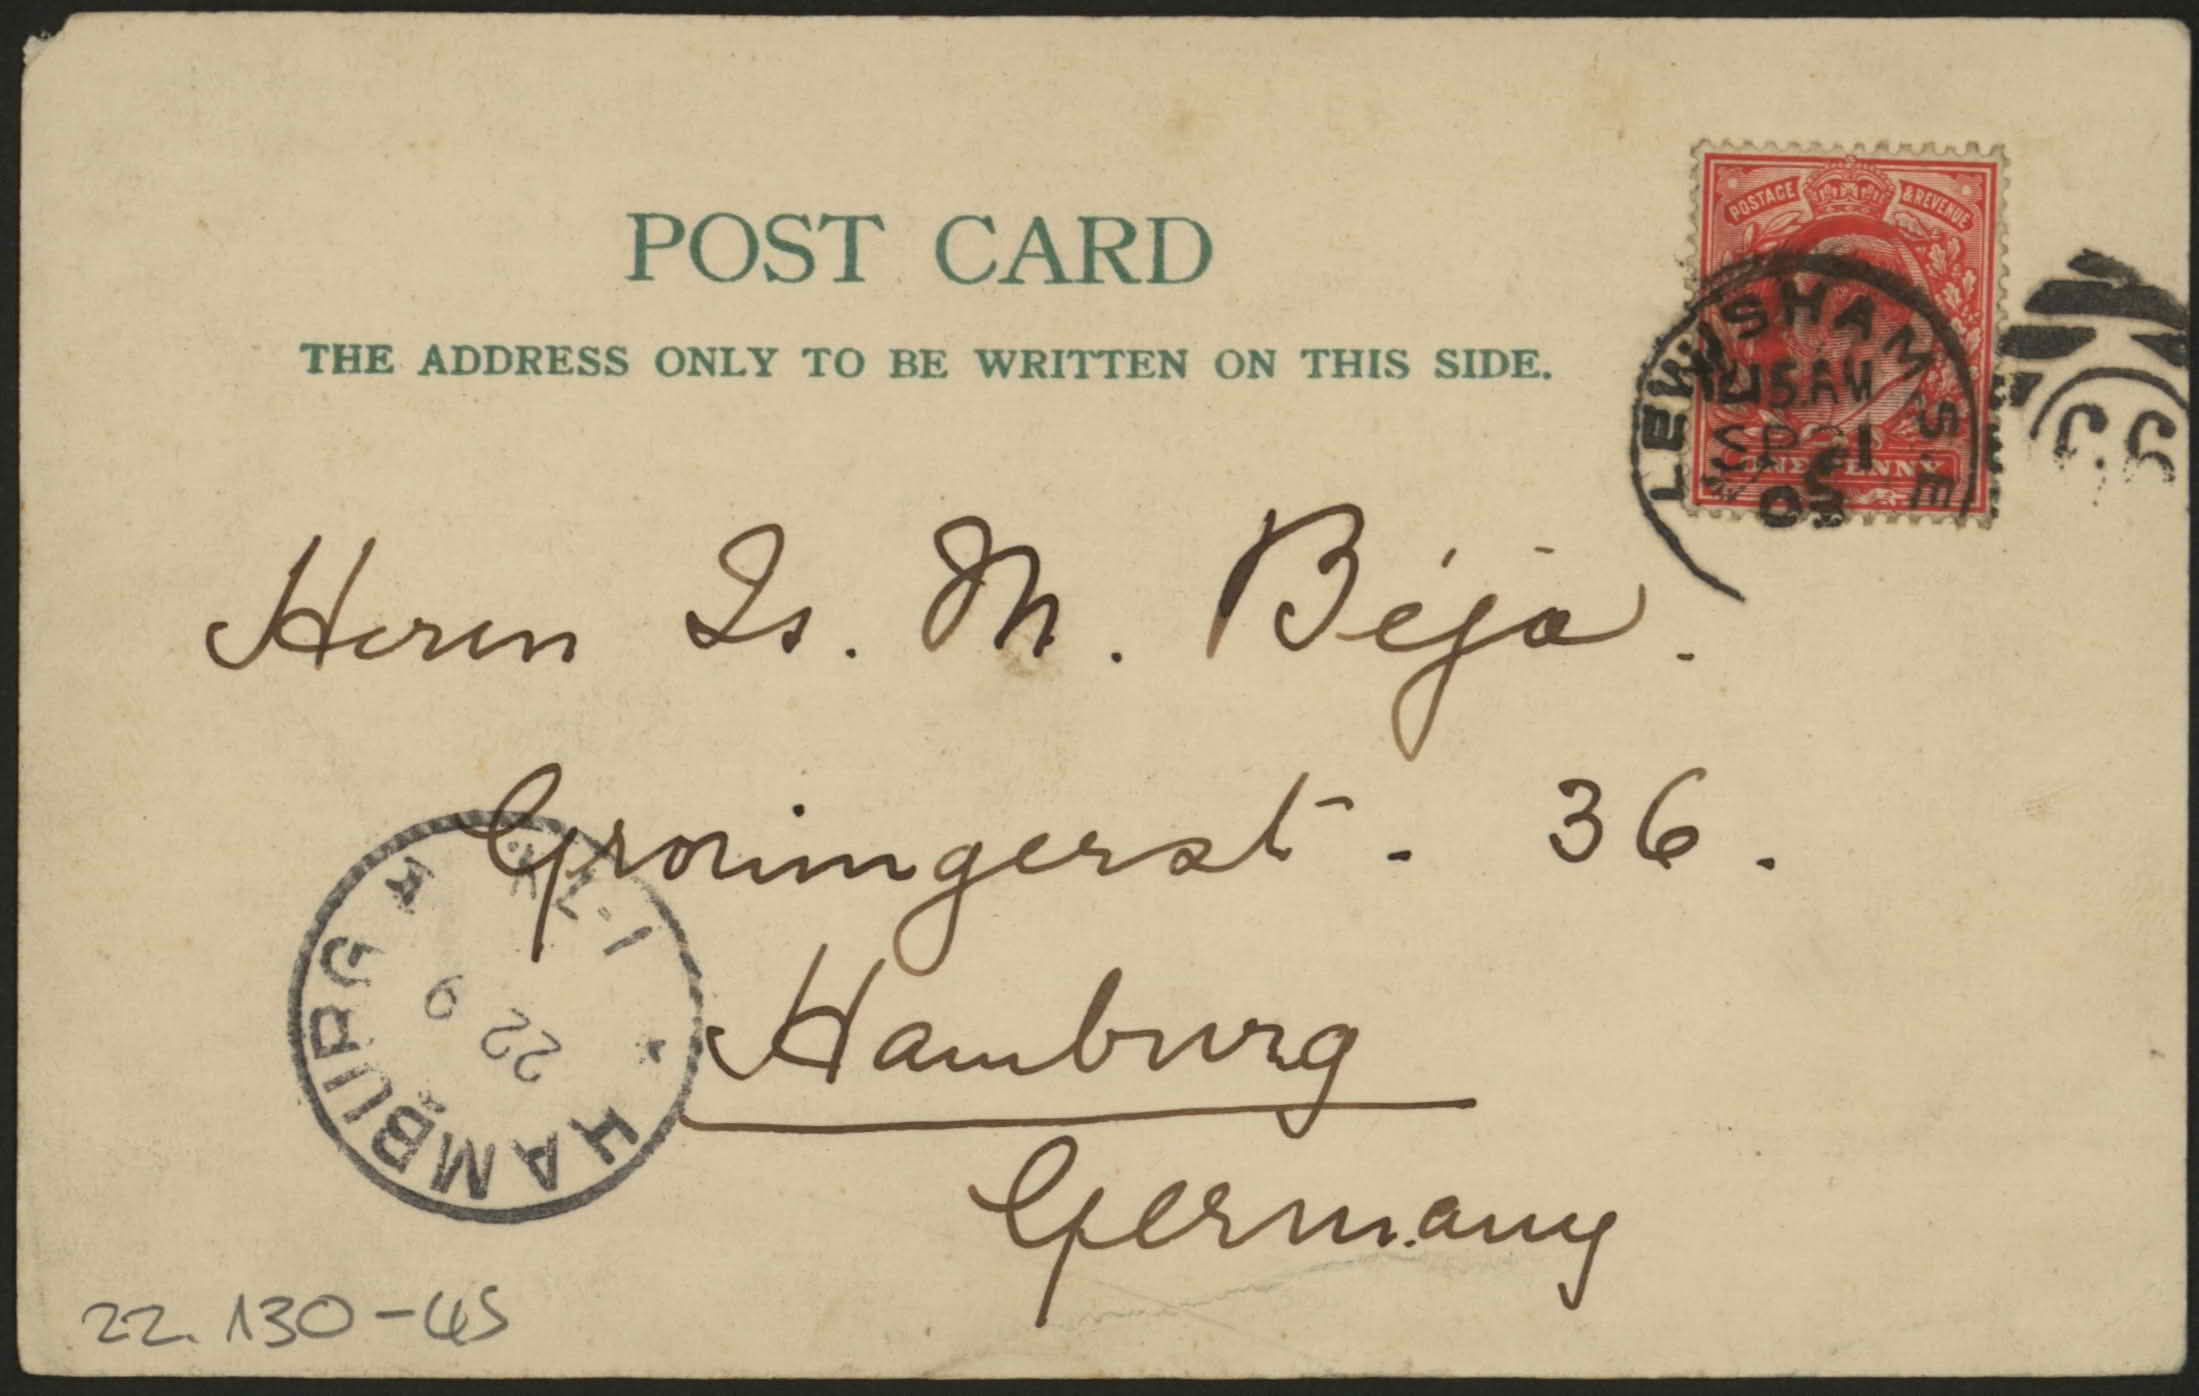 POST CARD
THE ADDRESS ONLY TO BE WRITTEN ON THIS SIDE.
POSTAGE & REVENUE
ONE PENNY
LEWISHAM S.E
15 AM
SP 21
Herrn Is. M. Béja.
Groningerst. 36.
Hamburg
Germany
HAMBURG
22 9
22.130-45